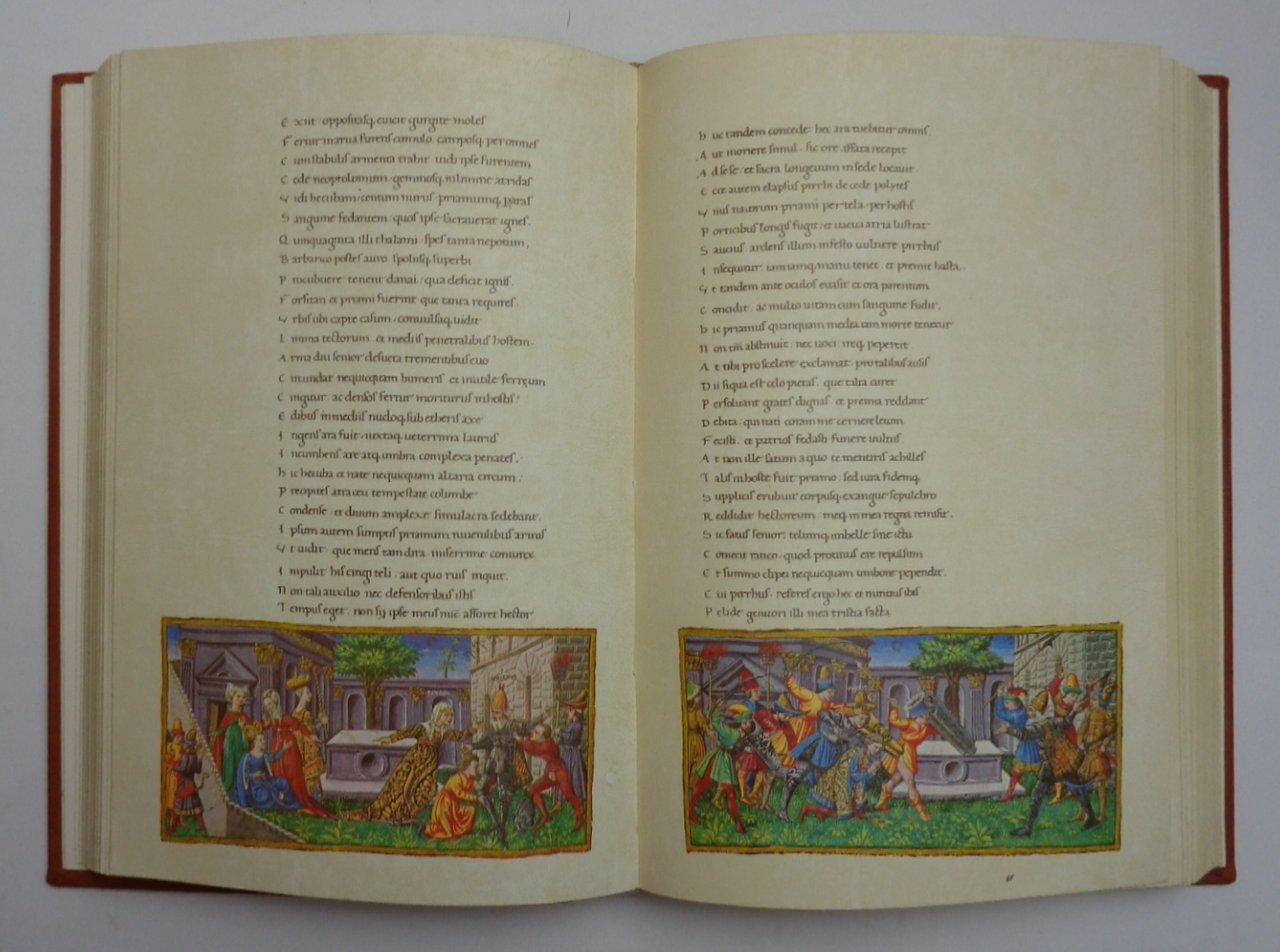 E xiit· oppositasq, euicit gurgite moles
F ertur in arua furens cumulo· camposq, per omnes
C um stabulis armenta trahit· uidi ipse furentem
C ede neoptolomum· geminosq, in limine atridas
V idi hecubam· centum nurus· priamumq, per aras
S anguine fedantem· quos ipse sacrauerat ignes.
Q uinquaginta illi thalami· spes tanta nepotum,
B arbarico postes auro· spoliisq, superbi
P rocubuere· tenent danai· qua deficit ignis.
F orsitan et priami fuerint que fata requires.
V rbis ubi capte casum· conuulsaq, uidit
L imina tectorum· et mediis penetralibus hostem.
A rma diu senior desueta trementibus euo
C ircundat nequicquam humeris et inutile ferrum
C ingitur· ac densos fertur moriturus in hostis.
E dibus in mediis nudoq, sub etheris axe
I ngens ara fuit· iuxtaq, ueterrima laurus
I ncumbens are atq, umbra complexa penates.
h ic hecuba et nate nequicquam altaria circum.
P recipites atra ceu tempestate columbe
C ondense· et diuum amplexe simulacra sedebant.
I psum autem sumptis priamum iuuenilibus armis
V t uidit· que mens tam dira miserrime coniunx
I mpulit his cingi telis· aut quo ruis inquit.
N on tali auxilio nec defensoribus istis
T empus eget· non sij ipse meus nuc̄ afforet hector
h uc tandem concede· hec ara tuebitur omnis.
A ut moriere simul· sic ore affata recepit
A d sese· et sacra longeuum in sede locauit.
E cce autem elapsus pirrhi de cede polytes
V nus natorum priami per tela· per hostis
P orticibus longis fugit· et uacua atria lustrat
S aucius· ardens illum infesto uulnere pirrhus
I nsequitur· iam iamq, manu tenet· et premit hasta.
V t tandem ante oculos euasit et ora parentum
C oncidit· ac multo uitam cum sanguine fudit.
h ic priamus quanquam media iam morte tenetur
N on tm̄ abstinuit· nec uoci· ireq, pepercit·
A t tibi pro scelere exclamat· pro talibus ausis
D ii siqua est celo pietas· que talia curet
P ersoluant grates dignas· et premia reddant
D ebita· qui nati coram me cernere letum
F ecisti· et patrios fedasti funere uultus.
A t non ille satum a quo te mentiris achilles
T alis in hoste fuit priamo· sed iura fidemq,
S upplicis erubuit· corpusq, exangue sepulchro
R eddidit hectoreum· meq, in mea regna remisit.
S ic fatus senior· telumq, imbelle sine ictu
C oniecit rauco· quod protinus ere repulsum
E t summo clipei nequicquam umbone pependit.
C ui pirrhus· referes ergo hec et nuntius ibis
P elide genitori· illi mea tristia facta